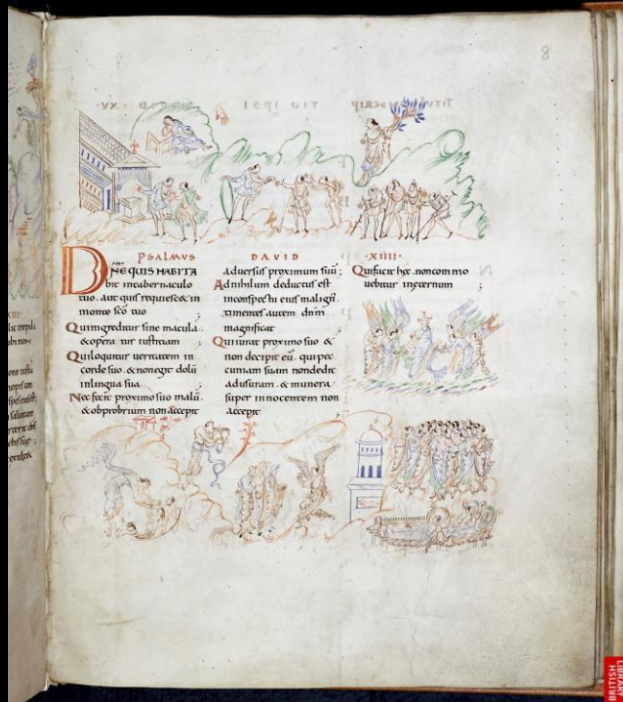 8
PSALMUS DAVID ·XIIII·
DNE QUIS HABITA
bit intabernaculo
tuo · aut quis requiescet in
monte sco tuo
Quiingreditur sine macula ·
& opera tur iustitiam
Quiloquitur veritatem in
corde suo · & nonegit dolū
inlingua sua
Nec fecit proximo suo malū ·
& obprobrium non accepit
adversus proximum suū ;
Ad nihilum deductus est
inconspectu eius malign'
timentes autem dnm
magnificat
Quiiurat proximo suo &
non decipit eū · qui pec
cuniam suam nondedit
adusuram · & munera
super innocentem non
accepit
Quifacit hęc · noncommo
vebitur inęternum
BRITISH
LIBRARY